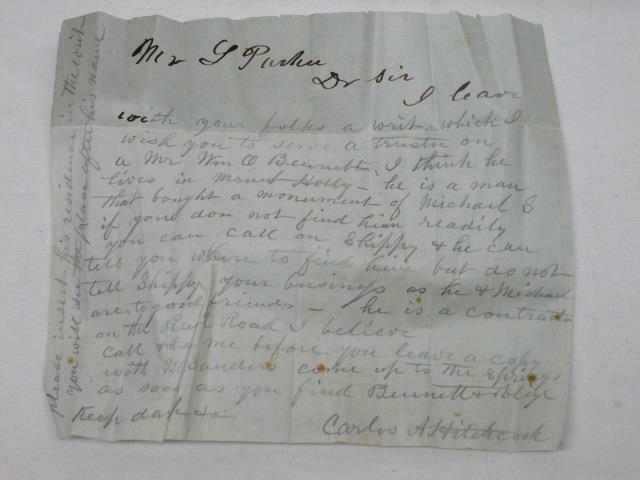 Mr S Parker
Dr Sir
I leave
with your folks a writ which I
wish you to serve a trustee on
a Mr Wm O Bennett, I think he
lives in Mount Holly - he is a man
that bought a monument of Michael E
if you don not find him readily
you can call on Shippy & he can
tell you where to find him but do not
tell Shippy your busings as he & Michael
are to good friends - he is a contractor
on the Rail Road I believe
call & me before you leave a copy
with come up to the Springs
as soon as you find Bennett & oblige
Keep dark &c
Carlos A Hitchcock
please insert his residence in the writ
you will see the place after his name